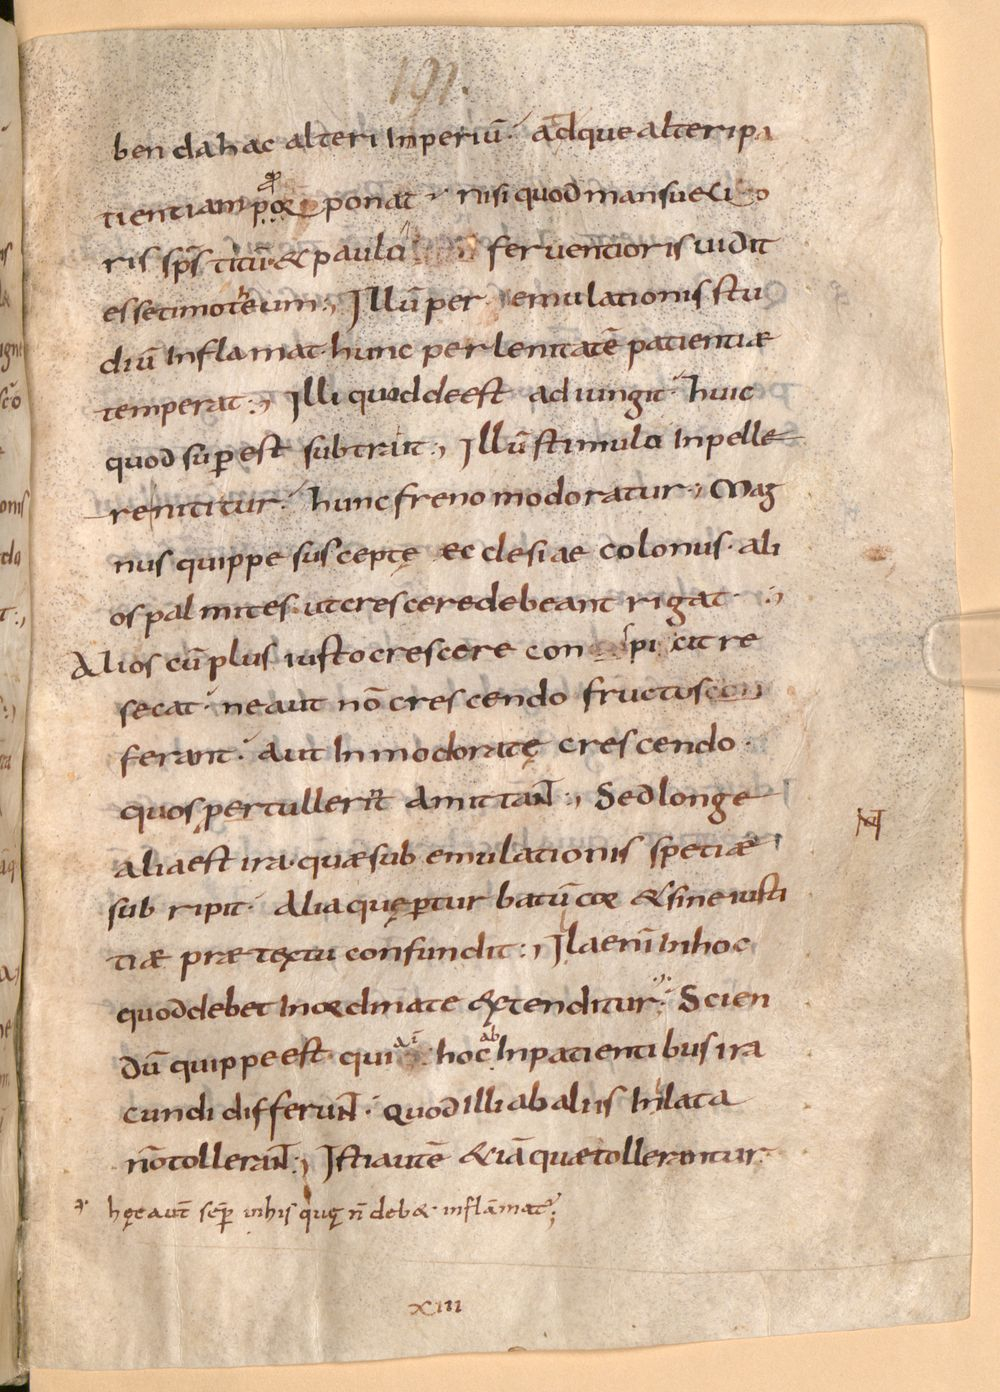 191.
ben da hac alteri Inperiū· adque alteri pa
tientiam p̄ponat· nisi quod mansuetio
ris sp̄s titū· & paulo feruentioris uidit
esse timoteum:, Illū per emulationis stu
diū Inflamat· hunc per lenitatē patientiæ
temperat:, Illi quod deest adiungit· huic
quod sup̄est subtrait:, Illū stimulo Inpelle
re nititur· hunc freno modoratur:, Mag
nus quippe susceptę ecclesiae colonus· ali
os palmites· ut crescere debeant rigat:,
Alios cū plus iusto crescere conspicit re
secat· ne aut nō crescendo fructus con
ferant· aut Inmodoratę crescendo·
quos pertullerit amittant:, Sed longe
alia est ira· quæ sub emulationis spetiæ
subripit· Alia quę ꝑturbatū cor & sine iusti
tiæ prætextu confundit:, Ila eni Inhoc
quod debet Inordinate extenditur·,. Scien
dū quippe est· quia hoc ab Inpatientibus ira
cundi differunt· quod illi ab aliis Inlata
nō tollerant:, Isti autē & iā quæ tollerentur·
hęc aut̄ sēp̄ in his quę n̄ deb& inflāmat̄;
xiii